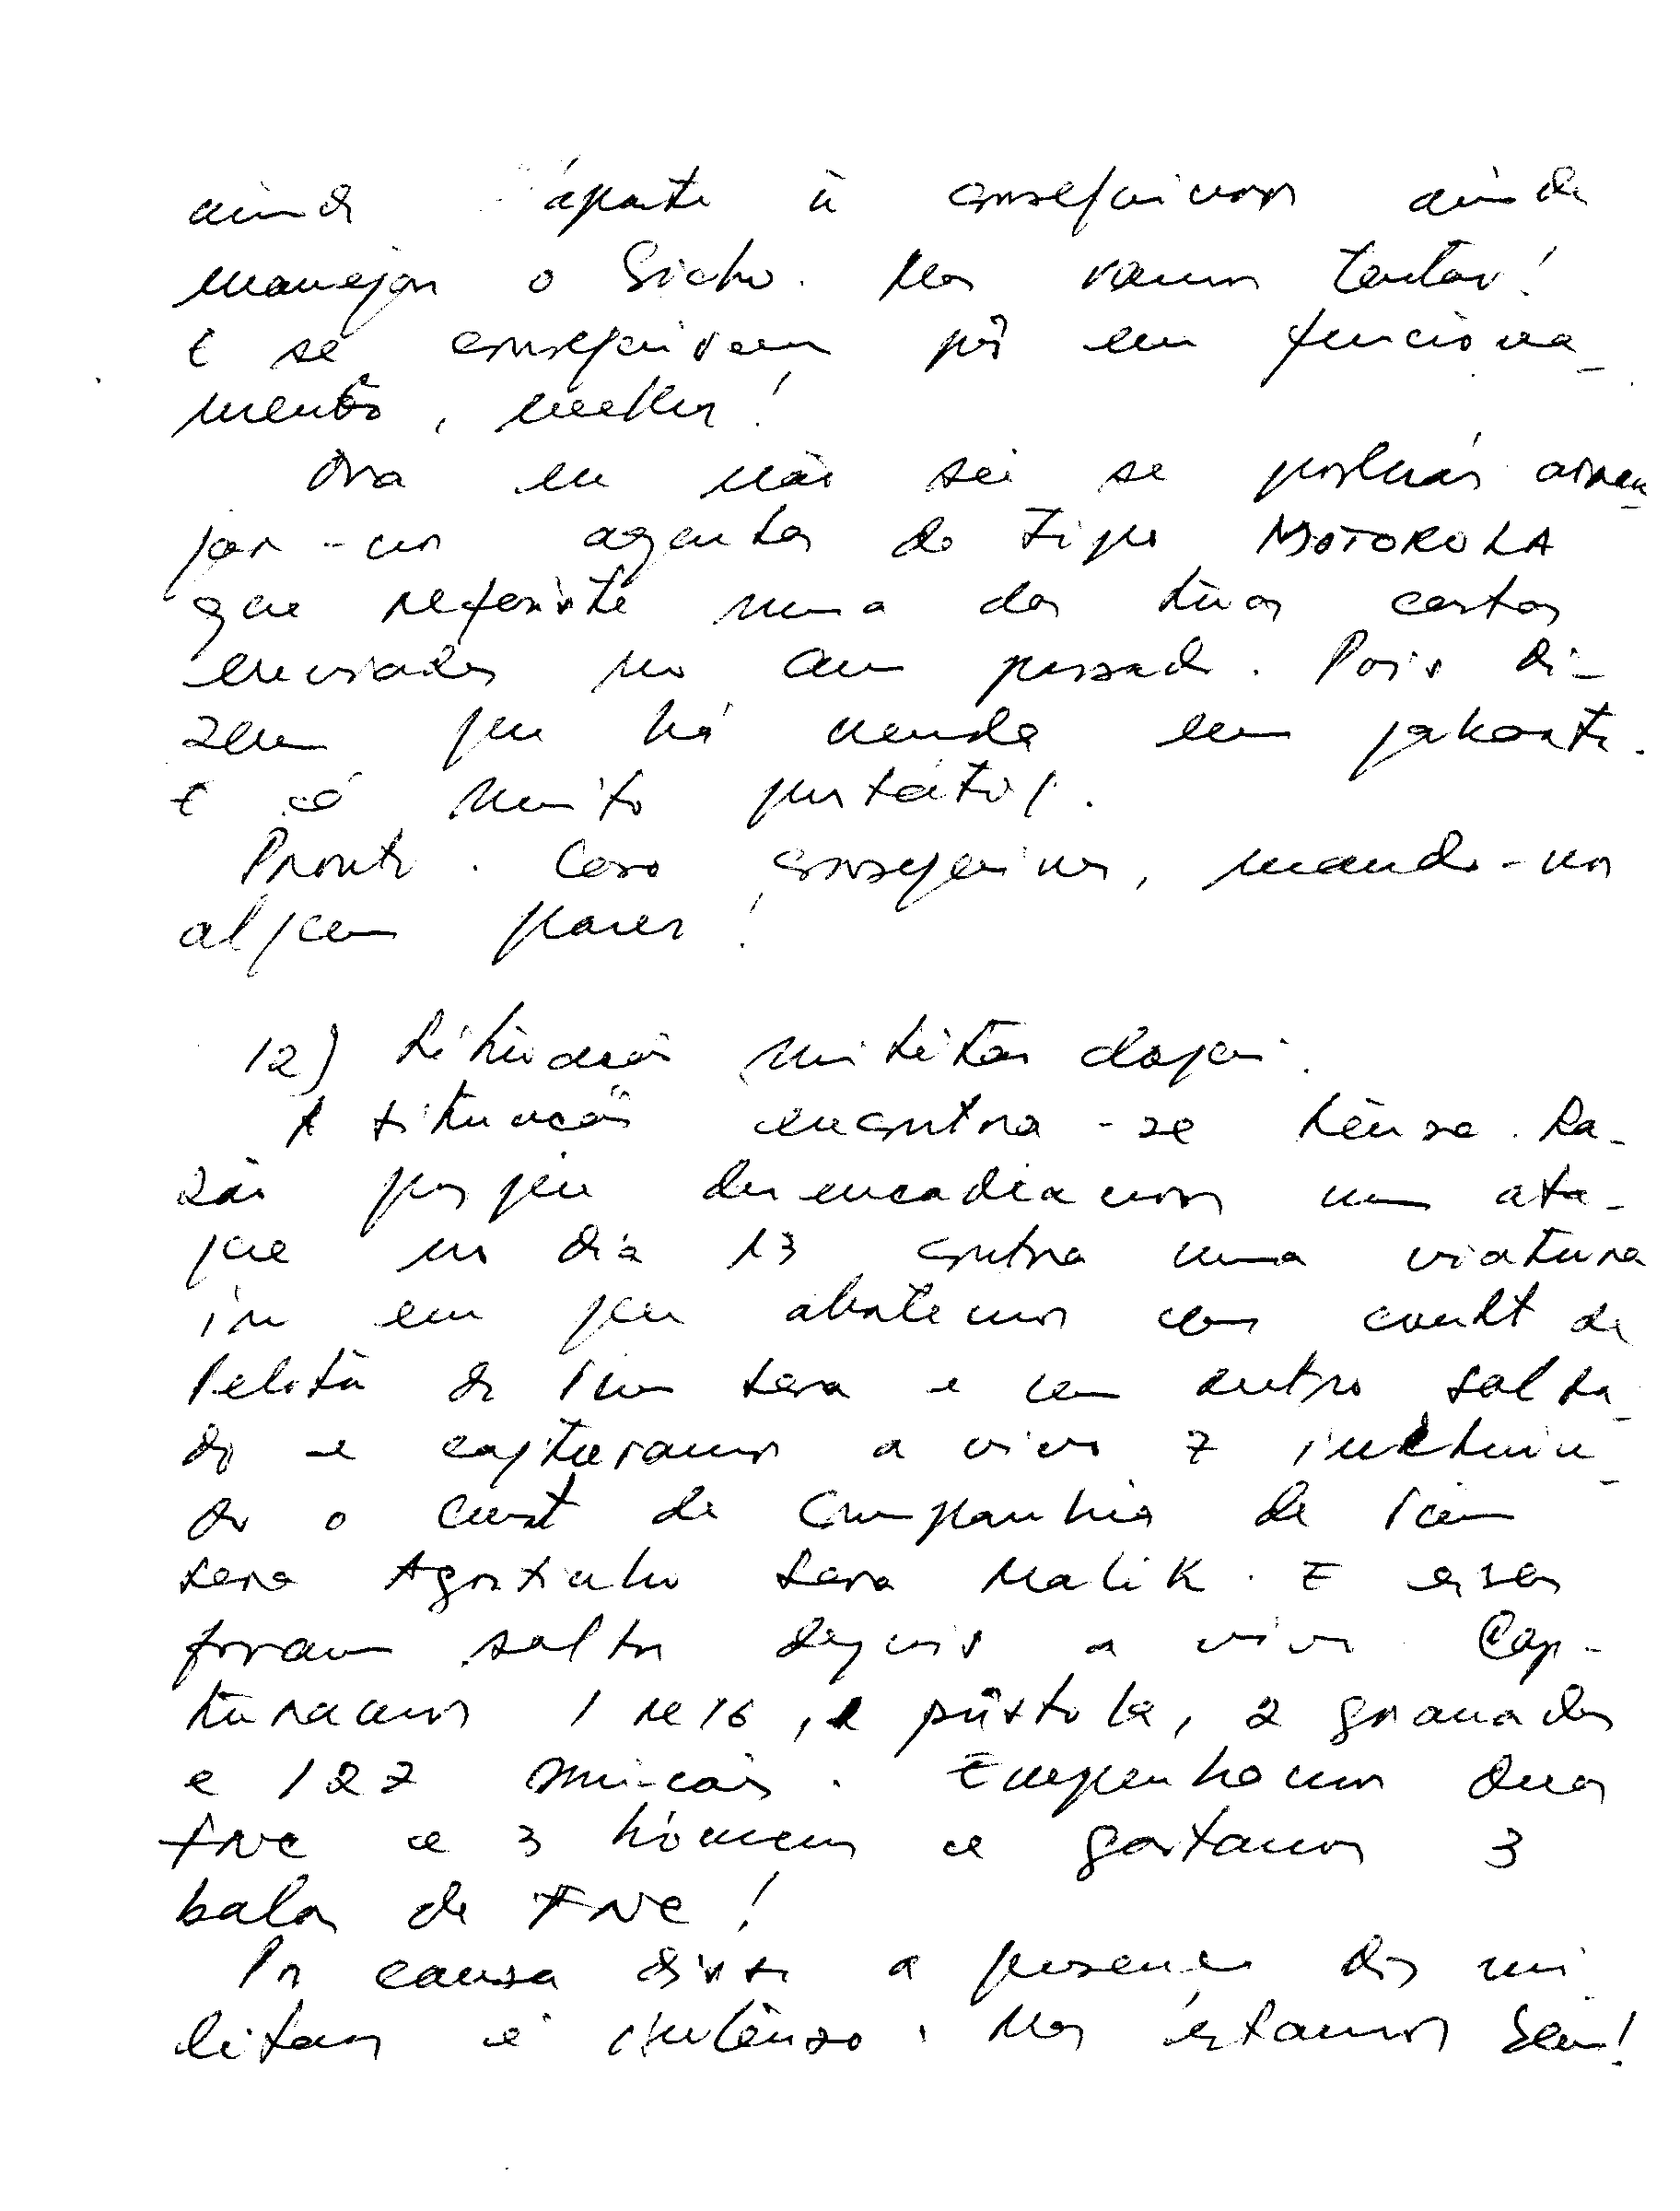 ainda aparte ù conseguirmos ainda
manejar o bicho. Mas vamos tentar!
E se conseguirem pôr em funciona-
mento, melhor!
Ora eu não sei se poderás arran
jar-nos agentes do tipo MOTOROLA
que referiste numa das tuas cartas
enviadas no ano passado. Pois di-
zem que há venda em Jakarta.
E é muito portátil.
Pronto. Caso consegires, mande-nos
algum pares!
12) Situação militar daqui.
A situação encontra-se tensa. Ra-
zão porque desencadeamos um ata-
que no dia 13 contra uma viatura
in em que abatemos um comdt de
Pelotão de Lian sera e um outro solda-
do e capturamos a vivo 7 incluin-
do o Cmdt de Companhia de Lian
sera Agostinho Sera Malik. E esses
foram soltos depois a vivo. Cap-
turamos 1 M16, 1 pistola, 2 granadas
e 127 munições. Empenhamos duas
FNC e 3 homens e gastamos 3
balas de FNC!
Por causa disto a presença dos mi
litares é intenso. Mas estamos bem!